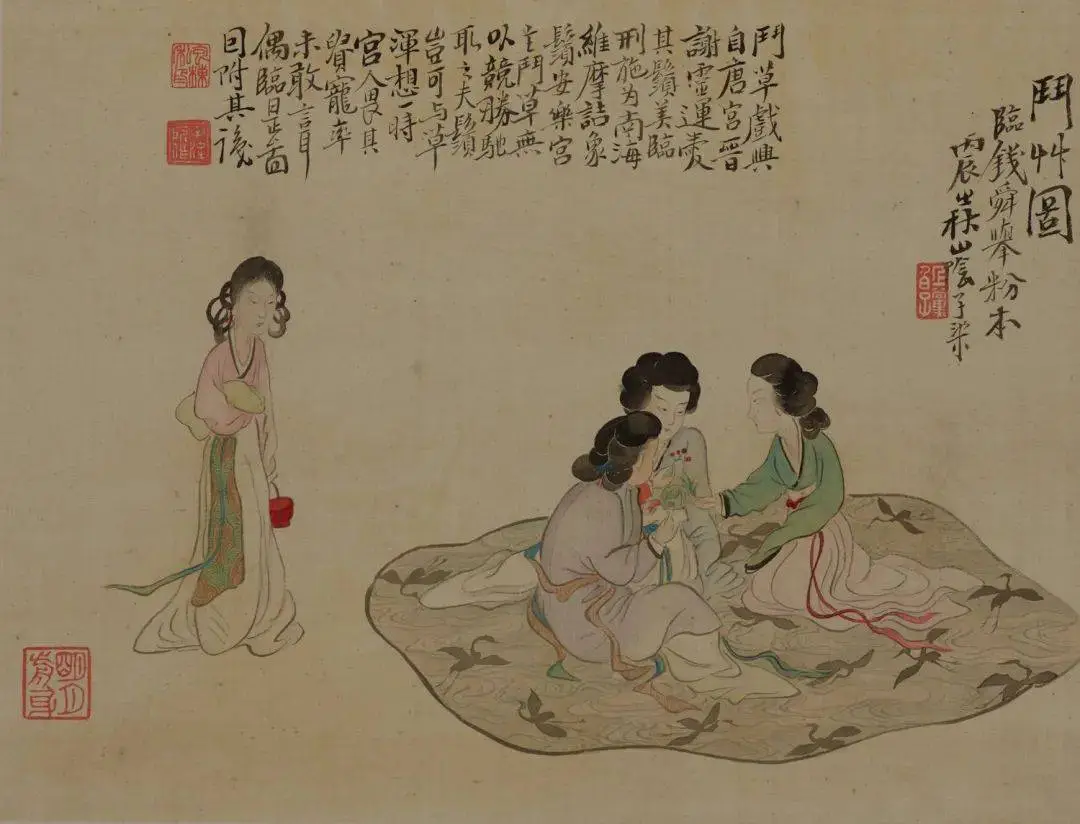 鬥艸圖
臨錢舜舉粉本
丙辰秌山陰子梁
鬥草戲興
自唐宮晋
謝靈運愛
其鬚美臨
刑施为南海
維摩詰象
鬚安樂宮
主鬥草無
以競勝馳
取之夫鬚
豈可与草
渾想一時
宮人畏其
貴寵率
未敢言耳
偶臨是啚
因附其後